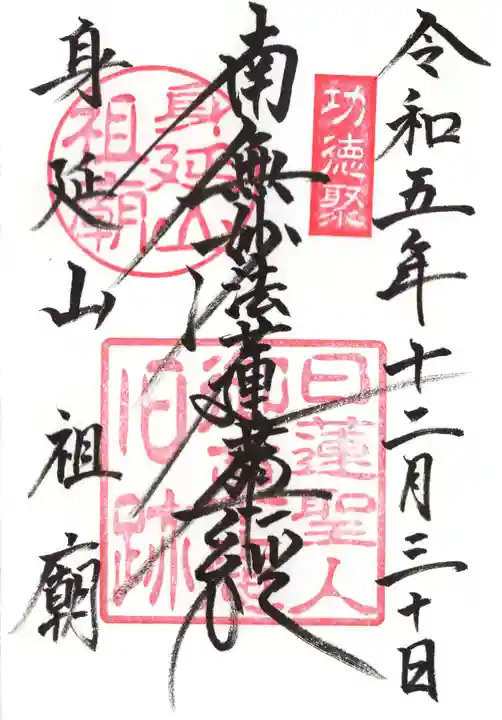 令和五年十二月三十日
功徳聚
南無妙法蓮華経
日蓮聖人
旧跡
身延山
祖廟
身延山 祖廟